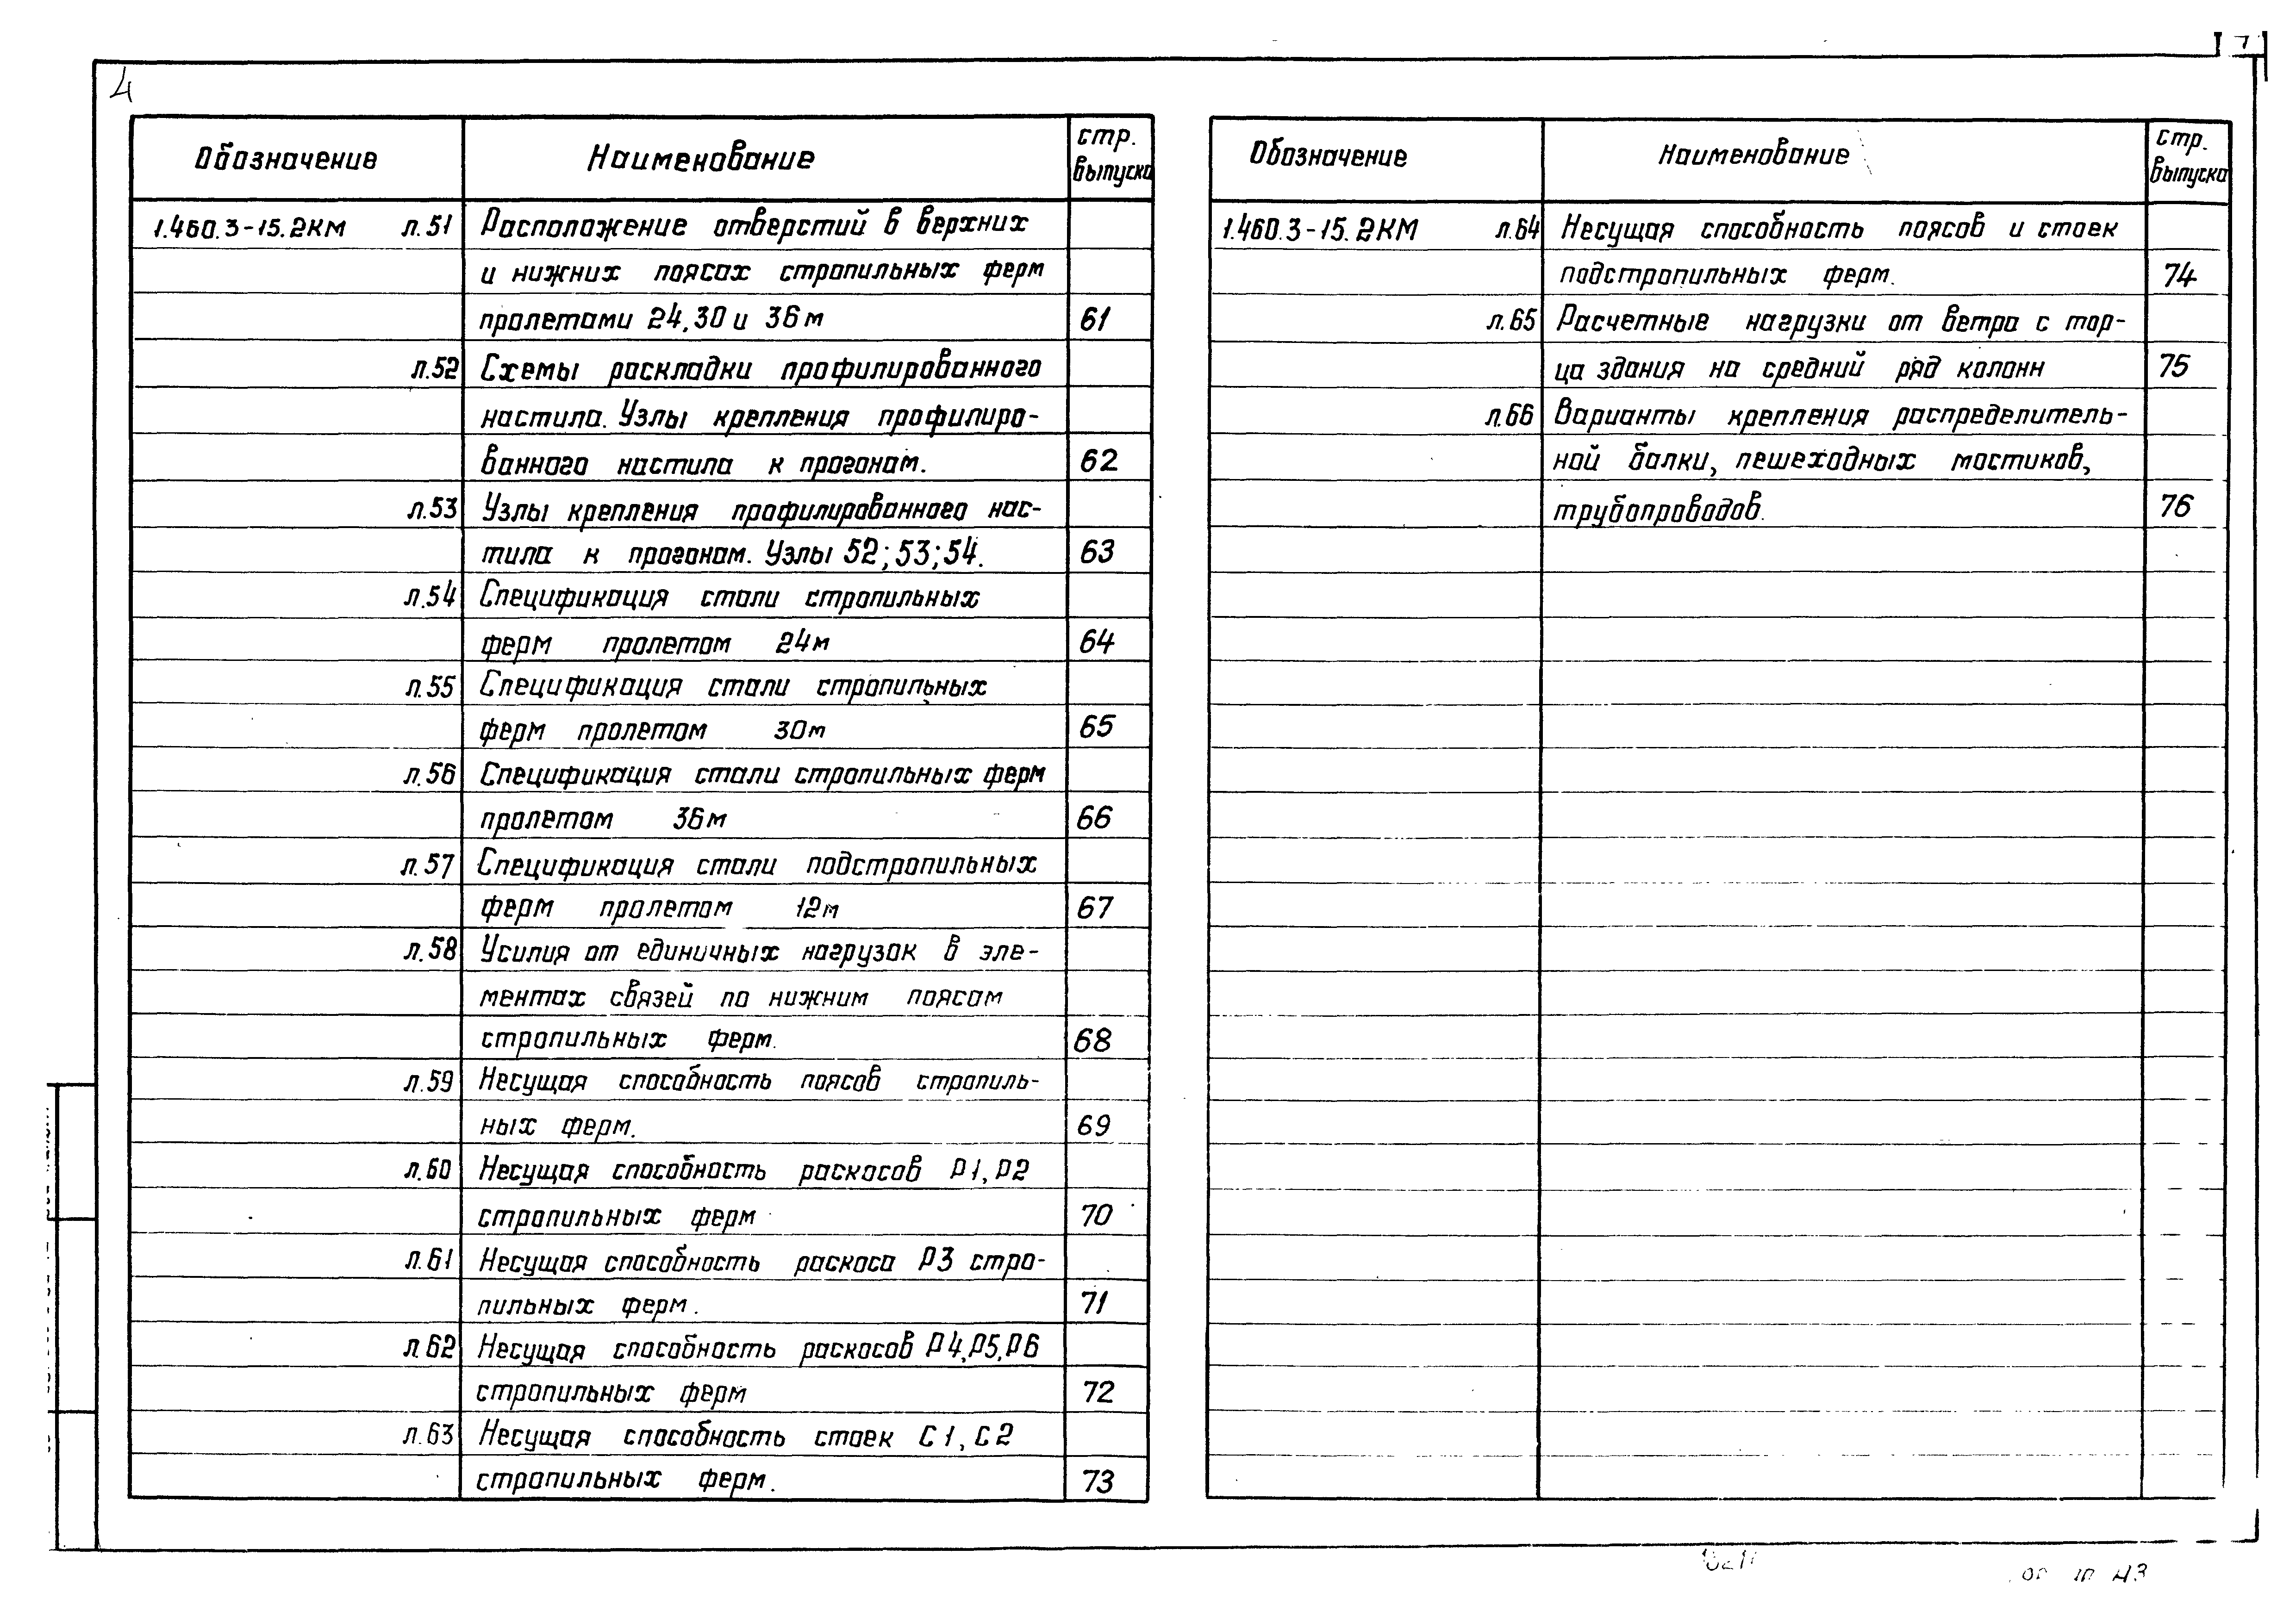 4
Обозначение Наименование стр. выпуска
1.460.3-15.2КМ л.51 Расположение отверстий в верхних
и нижних поясах стропильных ферм
пролетами 24,30 и 36м 61
л.52 Схемы раскладки профилированного
настила. Узлы крепления профилиро-
ванного настила к прогонам. 62
л.53 Узлы крепления профилированного нас-
тила к прогонам. Узлы 52; 53; 54. 63
л.54 Спецификация стали стропильных
ферм пролетом 24м 64
л.55 Спецификация стали стропильных
ферм пролетом 30м 65
л.56 Спецификация стали стропильных ферм
пролетом 36м 66
л.57 Спецификация стали подстропильных
ферм пролетом 12м 67
л.58 Усилия от единичных нагрузок в эле-
ментах связей по нижним поясам
стропильных ферм. 68
л.59 Несущая способность поясов стропиль-
ных ферм. 69
л.60 Несущая способность раскосов Р1, Р2
стропильных ферм 70
л.61 Несущая способность раскоса Р3 стро-
пильных ферм. 71
л.62 Несущая способность раскосов Р4,Р5,Р6
стропильных ферм 72
л.63 Несущая способность стоек С1, С2
стропильных ферм. 73
Обозначение Наименование стр. выпуска
1.460.3-15.2КМ л.64 Несущая способность поясов и стоек
подстропильных ферм. 74
л.65 Расчетные нагрузки от ветра с тор-
ца здания на средний ряд колонн 75
л.66 Варианты крепления распределитель-
ной балки, пешеходных мостиков,
трубопроводов. 76